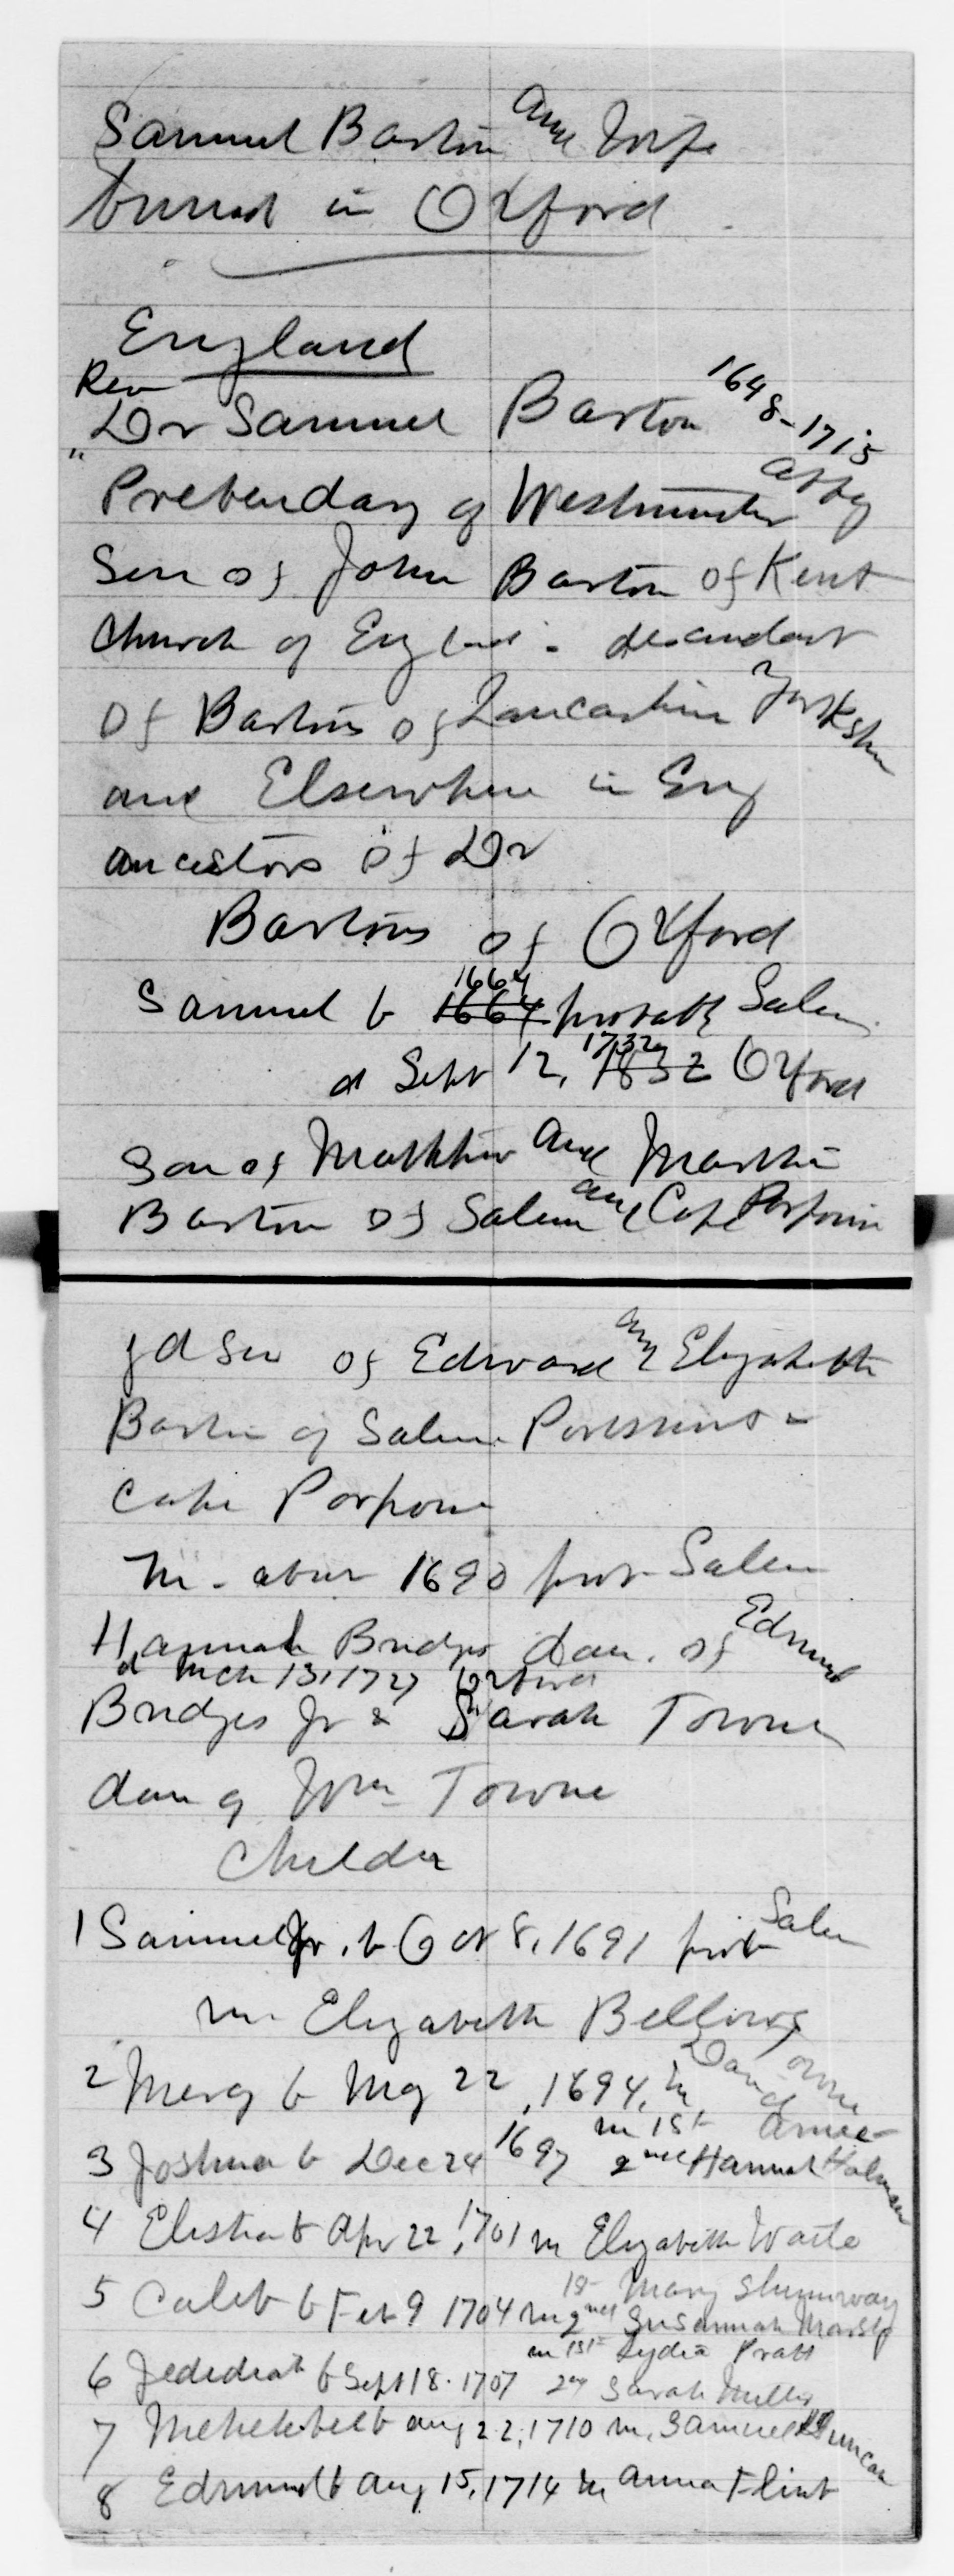 Samuel Barton and Wife
buried in Oxford
England
Rev
Dr Samuel Barton 1648-1715
" Prebendary of Westminster Abbey
Son of John Barton of Kent
Church of England - descendant
of Bartons of Lancashire Yorkshire
and Elsewhere in Eng
ancestors of Dr
Bartons of Oxford
1664
Samuel b 1664 probably Salem
1732
d Sept 12, 1832 Oxford
Son of Matthew and Martha
Barton of Salem and Cape Porpoise
gd Son of Edward and Elizabeth
Barton of Salem Portsmouth
Cape Porpoise
m - about 1690 prob Salem
Hannah Bridges dau. of Edmund
d Mch 13, 1727 Oxford
Bridges Jr & Sarah Towne
dau of Wm Towne
Children
1 Samuel Jr. b Oct 8, 1691 prob Salem
m Elizabeth Bellows
2 Mercy b May 22, 1694, m David Towne
3 Joshua b Dec 24 1697 m 1st Anna 2nd Hannah Holman
4 Elisha b Apr 22, 1701 m Elizabeth Waite
5 Caleb b Feb 9 1704 m 1st Mary Shumway 2nd Susannah Marsh
6 Jedediah b Sept 18. 1707 m 1st Lydia Pratt 2nd Sarah
7 Mehetebel b Aug 22, 1710 m. Samuel Duncan
8 Edmund b Aug 15, 1714 m Anna Flint